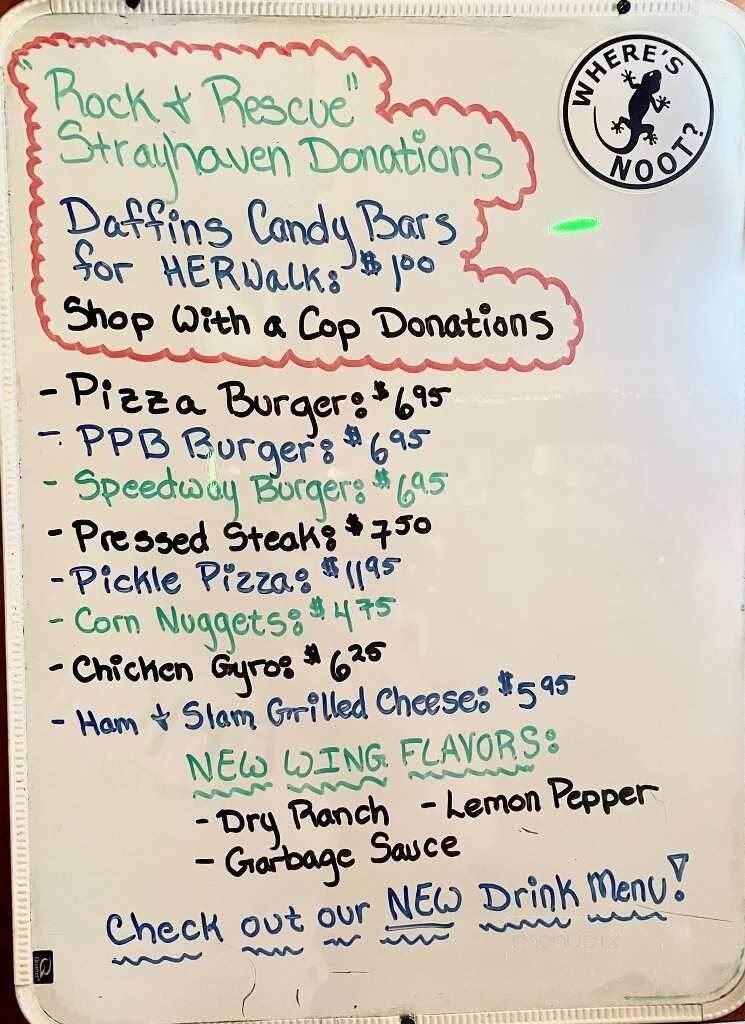 "Rock & Rescue"
Strayhaven Donations
Daffins Candy Bars
for HERWalk: $1.00
Shop With a Cop Donations
WHERE'S
NOOT?
- Pizza Burger: $6.95
- PPB Burger: $6.95
- Speedway Burger: $6.95
- Pressed Steak: $7.50
- Pickle Pizza: $11.95
- Corn Nuggets: $4.75
- Chicken Gyro: $6.25
- Ham & Slam Grilled Cheese: $5.95
NEW WING FLAVORS:
- Dry Ranch - Lemon Pepper
- Garbage Sauce
Check out our NEW Drink Menu!
menupix
Quartet